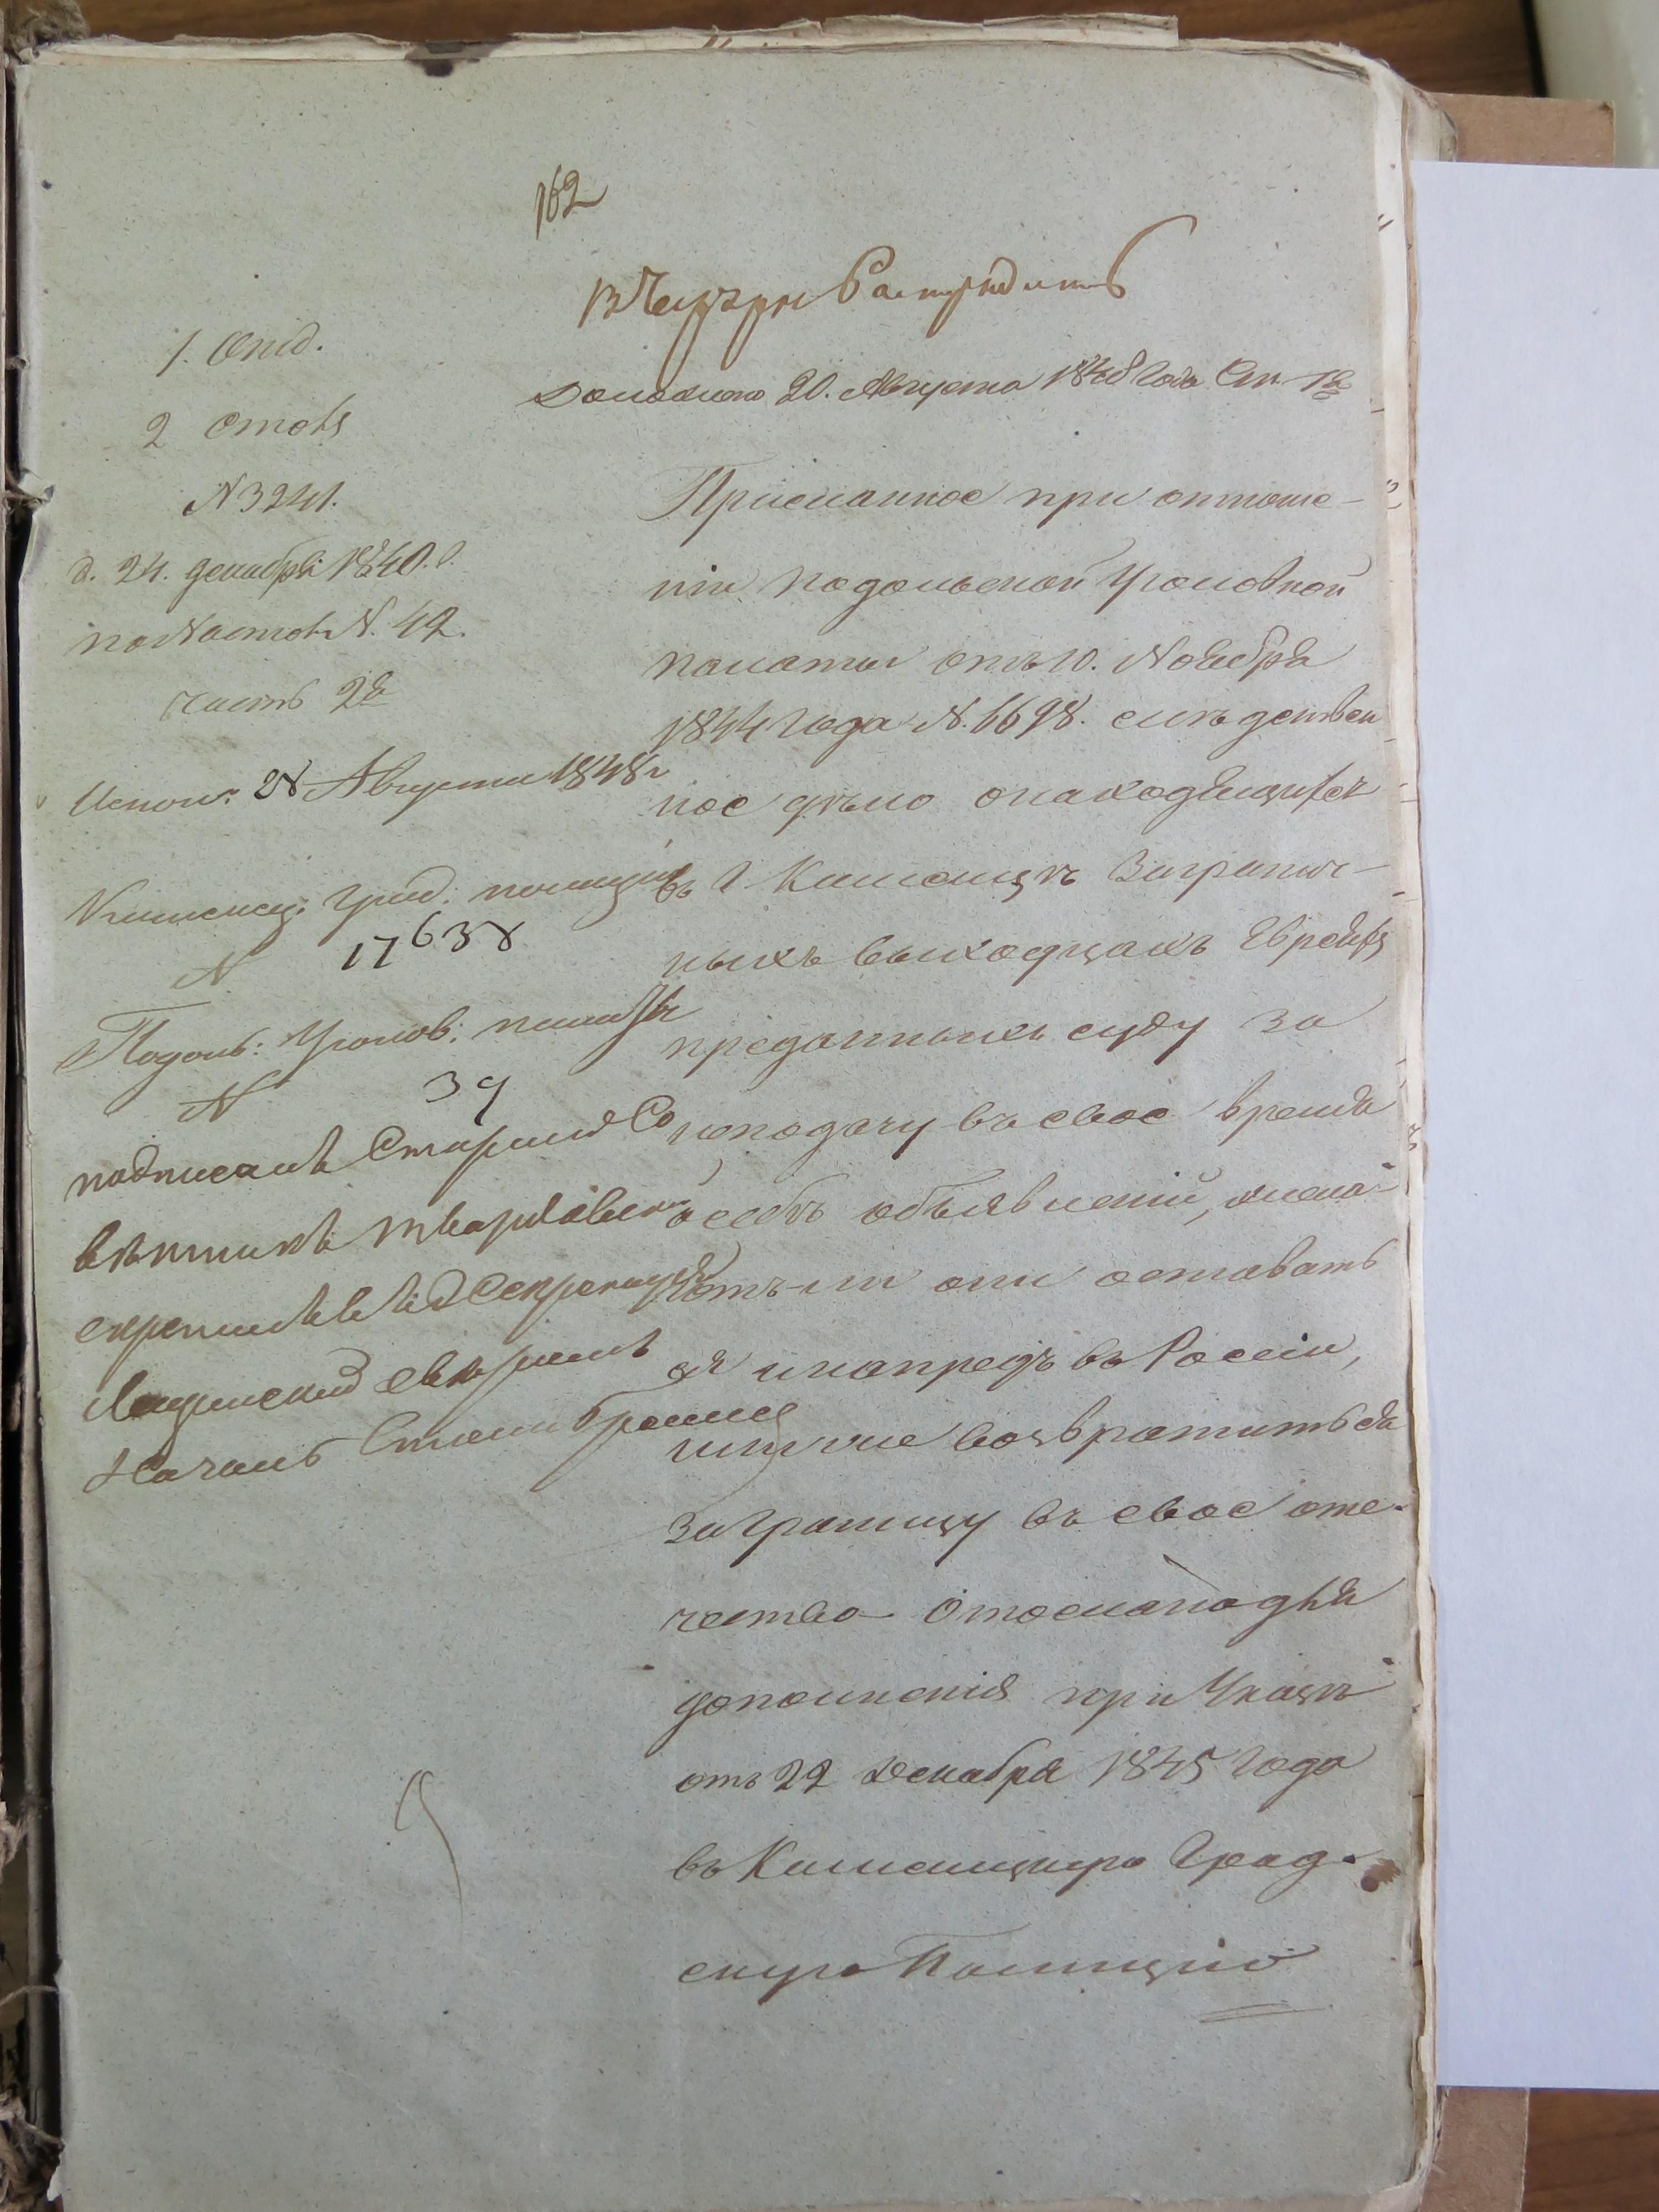 162
Доложено 20. Августа 1848 года Ст.
1. Отд.
2 Столъ
N 3241.
д. 24. декабря 1840. г.
по Настол. N. 42.
часть 2я
Испол: 28 Августа 1848 г
Каменец: Град: полиции
N 17638
Подоль: Уголов: палаты
N 39
подписалъ Старший Со
вѣтникъ
скрепилъ Секретарь
свѣрялъ
Началь
Присланное при отноше-
ніи Подольской Уголовной
палаты отъ 10. Ноября
1844 года N. 6698. слѣдствен
ное дѣло о находящихся
въ г. Каменцѣ Загранич-
ныхъ выходцахъ Евреяхъ
преданныхъ суду за
неподачу въ свое время
о себѣ объявленій, жела-
ютъ-ли они оставать
ся и напредь въ Россіи,
или же возвратиться
заграницу въ свое оте-
чество отослано для
дополненія при Указѣ
отъ 22 декабря 1845 года
въ Каменецкую Град-
скую Полицію